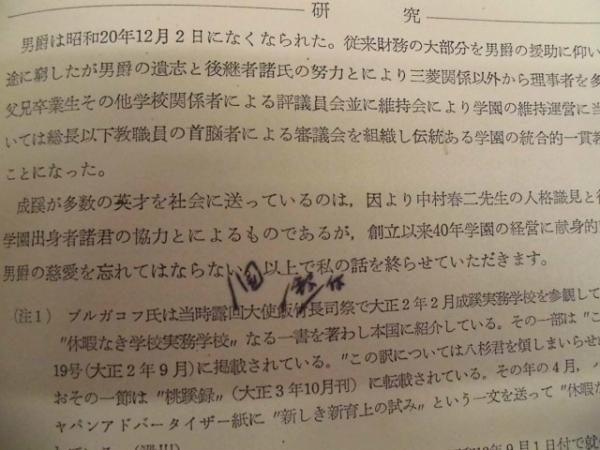 研究
男爵は昭和20年12月2日になくなられた。従来財務の大部分を男爵の援助に仰い
途に窮したが男爵の遺志と後継者諸氏の努力とにより三菱関係以外から理事者を多
父兄卒業生その他学校関係者による評議員会並に維持会により学園の維持運営に当
いては総長以下教職員の首脳者による審議会を組織し伝統ある学園の統合的一貫教
ことになった。
成蹊が多数の英才を社会に送っているのは，因より中村春二先生の人格識見と
学園出身者諸君の協力とによるものであるが，創立以来40年学園の経営に献身的
男爵の慈愛を忘れてはならない。以上で私の話を終らせていただきます。
(注1) ブルガコフ氏は当時露回大使飯付長司祭で大正2年2月成蹊実務学校を参観して
〃休暇なき学校実務学校〃なる一書を著わし本国に紹介している。その一部は〃こ
19号(大正2年9月)に掲載されている。〃この訳については八杉君を煩しまいらせ
おその一節は〃桃蹊録〃(大正3年10月刊)に転載されている。その年の4月，
ャパンアドバータイザー紙に〃新しき新育上の試み〃という一文を送って〃休暇
年9月1日付で就